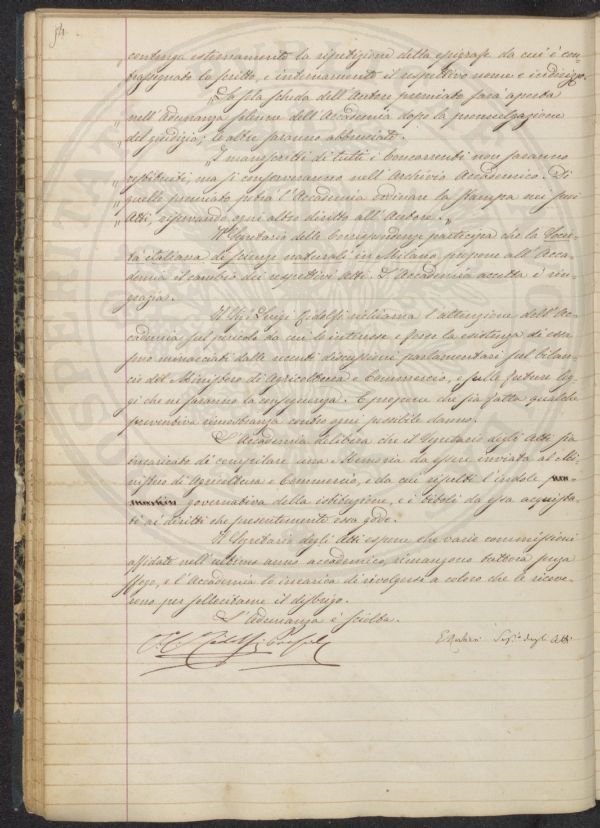 54.
„ contenga esternamente la ripetizione della epigrafe da cui è con=
„ trassegnato lo scritto, e internamente il respettivo nome e indirizzo.
„ La sola scheda dell'Autore premiato sarà aperta
„ nell'Adunanza solenne dell'Accademia dopo la promulgazione
„ del giudizio; le altre saranno abbruciate.
„ I manoscritti di tutti i Concorrenti non saranno
„ restituiti, ma si conserveranno nell'Archivio Accademico. Di
„ quello premiato potrà l'Accademia ordinare la stampa nei suoi
„ Atti, riservando ogni altro diritto all'Autore. „
Il Segretario delle Corrispondenze partecipa che la Socie-
tà italiana di scienze naturali in Milano propone all'Acca-
demia il cambio dei respettivi Atti. L'Accademia accetta e rin-
grazia.
Il Luigi Ridolfi richiama l'attenzione dell'Ac-
cademia sul pericolo da cui le interesse e forse la esistenza di essa
sono minacciati dalle recenti discussioni parlamentari sul bilan-
cio del Ministero di Agricoltura e Commercio, e sulle future leg-
gi che ne saranno la conseguenza. E propone che sia fatta qualche
preventiva rimostranza contro ogni possibile danno.
L'Accademia delibera che il Segretario degli Atti sia
incaricato di compilare una Memoria da essere inviata al Mi-
nistro di Agricoltura e Commercio, e da cui risulti l'indole
governativa della istituzione, e i titoli da essa acquista-
ti ai diritti che presentemente essa gode.
Il Segretario degli Atti espone che varie commissioni
affidate nell'ultimo anno accademico, rimangono tuttora senza
sfogo, e l'Accademia lo incarica di rivolgersi a coloro che le riceve-
rono per sollecitarne il disbrigo.
L'Adunanza è sciolta.
Ridolfi Segr.o degli Atti